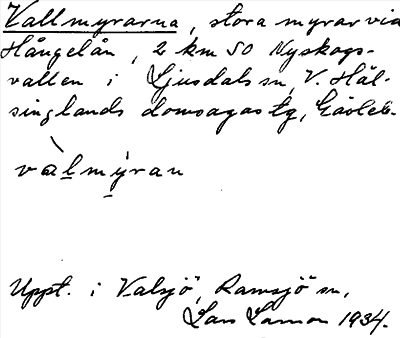 Vallmyrarna, stora myrar via
Hångelån, 2 km SO Nyskogs-
vallen i Ljusdals sn, V. Häl-
singlands domsagas tg, Gävleb.
vàlmýran
Uppt. i Valsjö, Ramsjö sn,
Lars 1934.